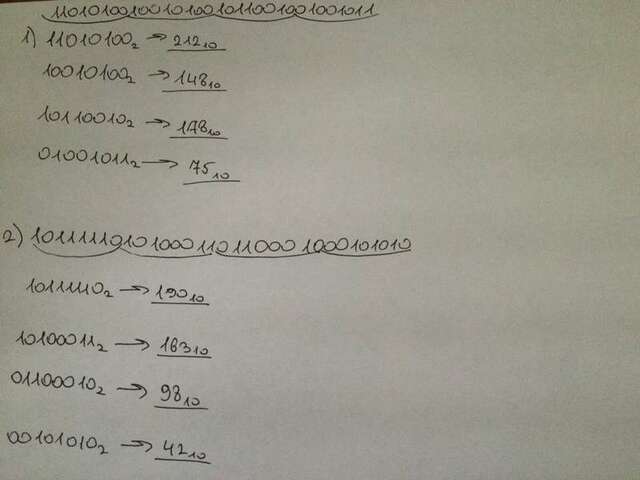 11010100100101001011001001001011
1) 11010100₂ → 212₁₀
10010100₂ → 148₁₀
10110010₂ → 178₁₀
01001011₂ → 75₁₀
2) 10111110101000110110001000101010
10111110₂ → 190₁₀
10100011₂ → 163₁₀
01100010₂ → 98₁₀
00101010₂ → 42₁₀